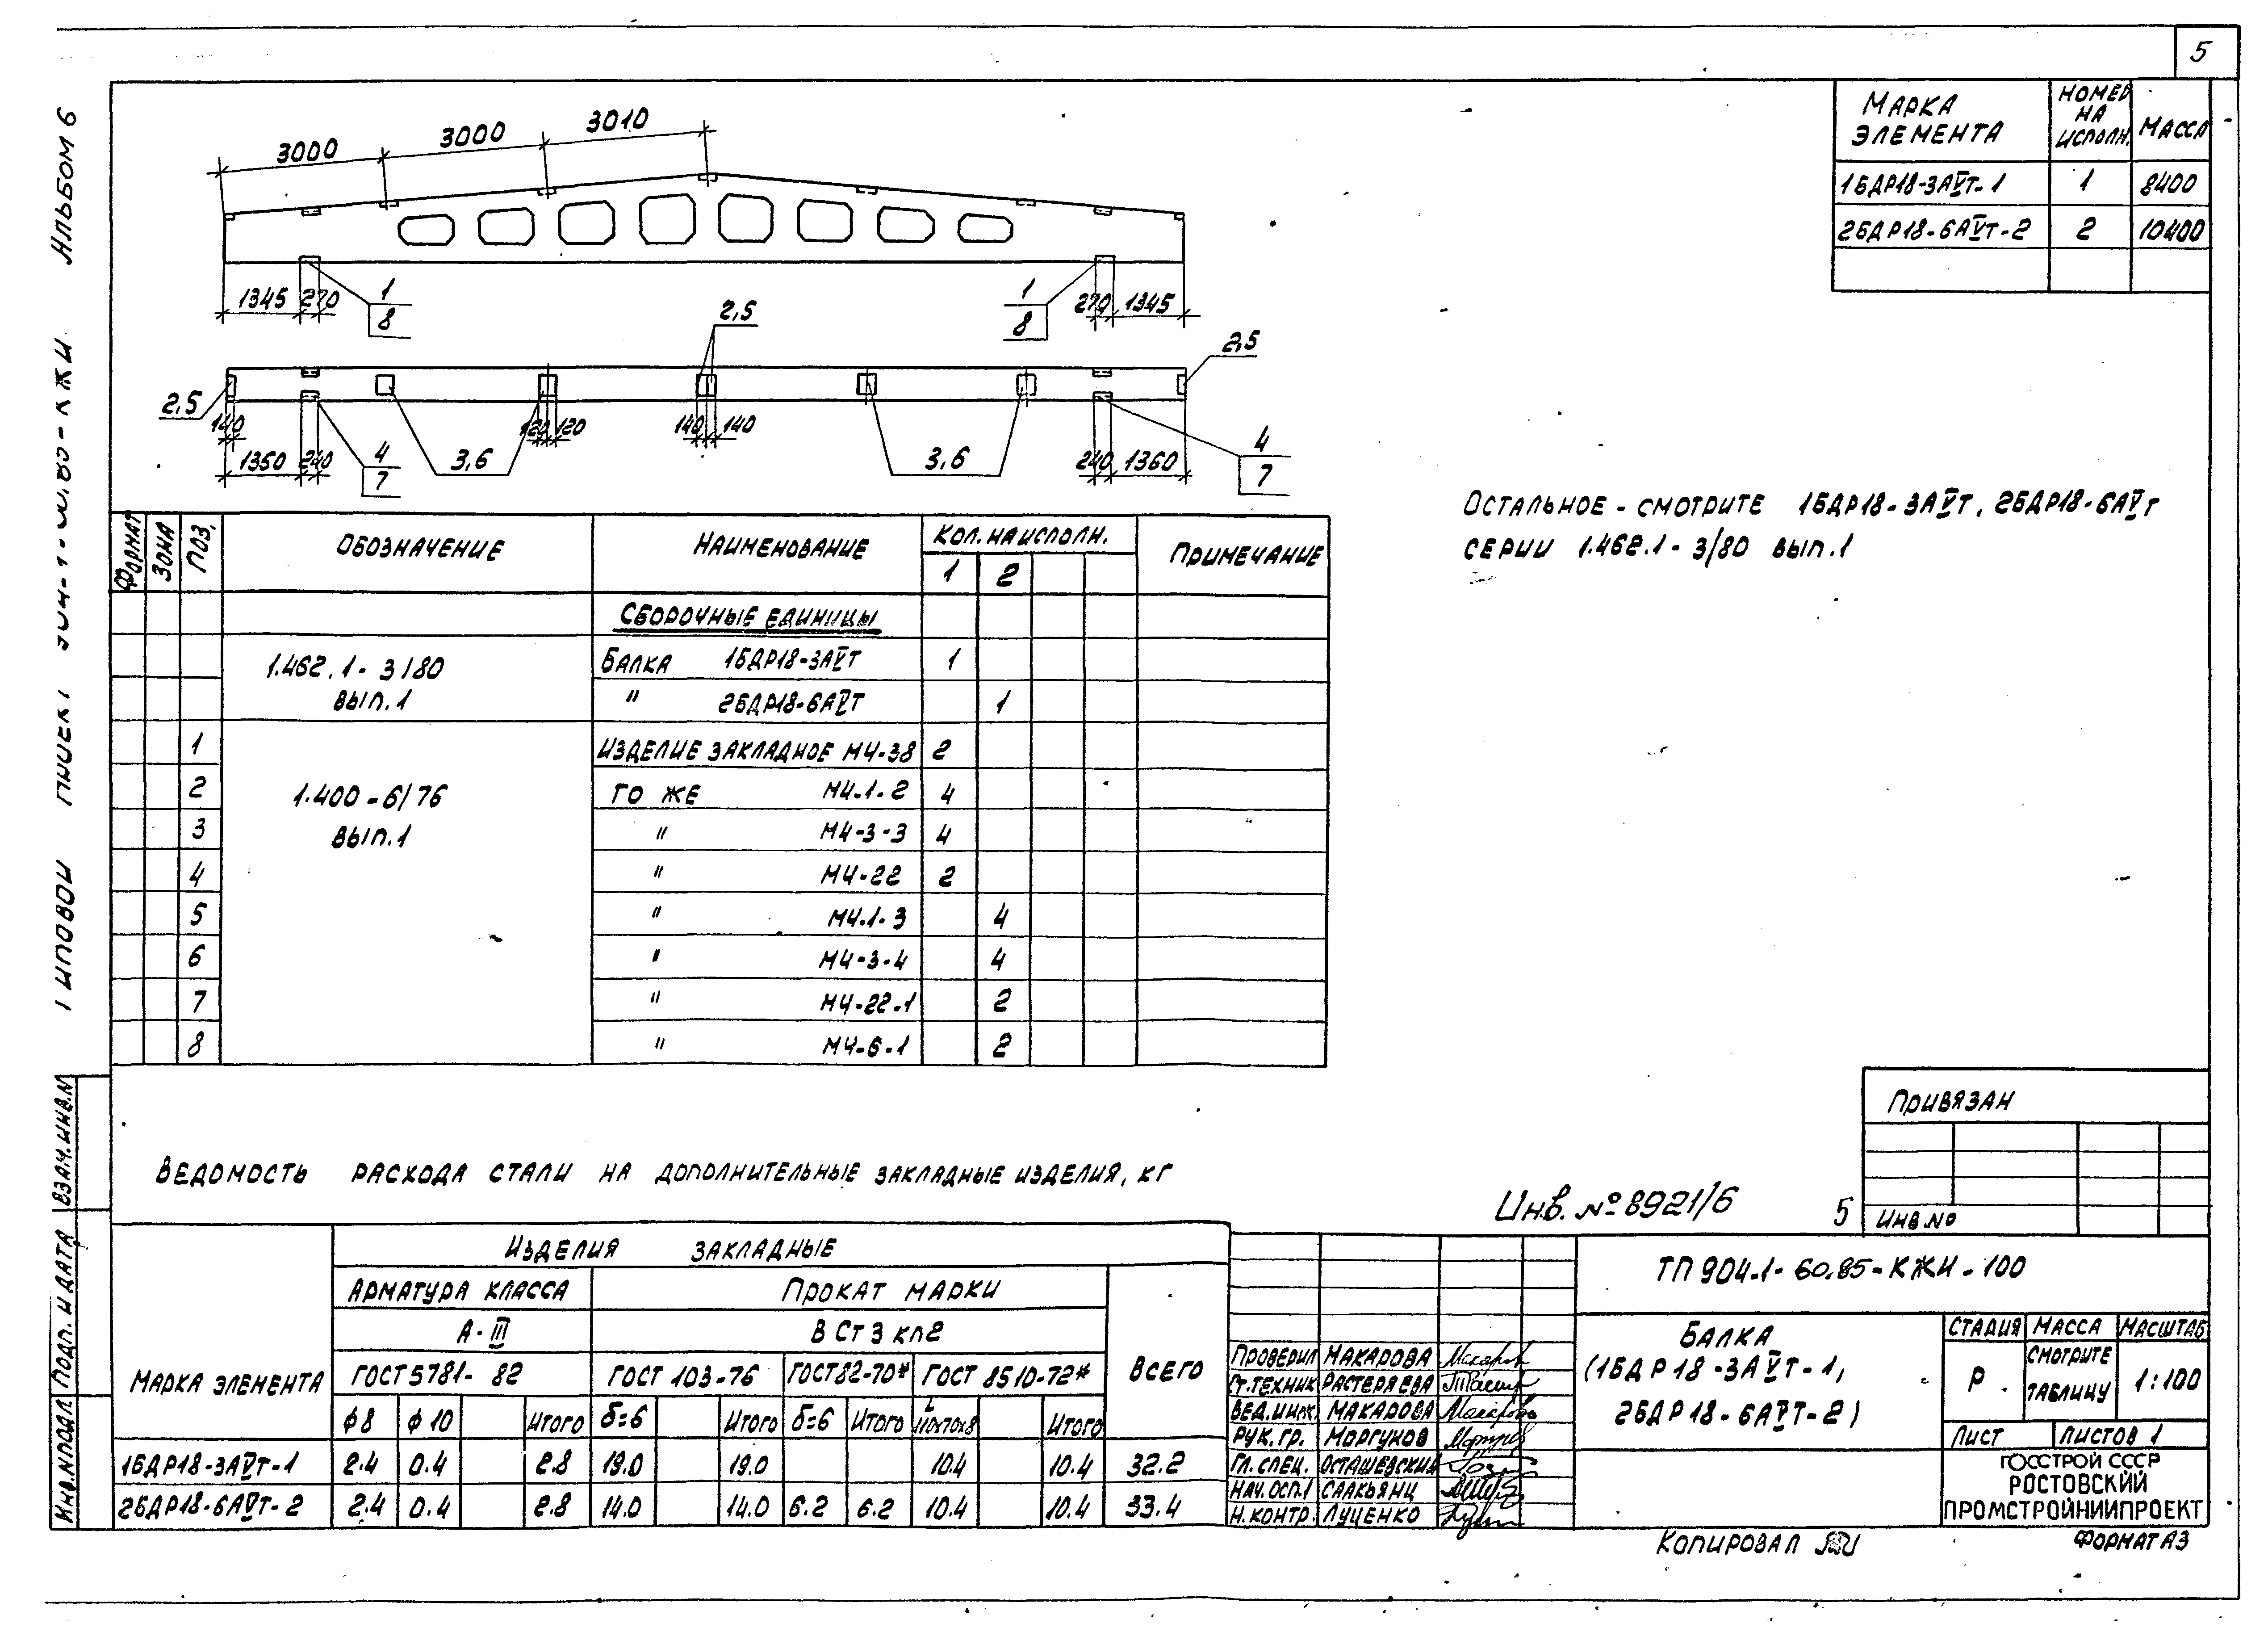 5
Альбом 6
Типовой проект 904-1-60.85-КЖИ
3000
3000
3010
1345
270
1
8
1
8
270
1345
2,5
2,5
2,5
140
120
120
140
140
1350
240
4
7
3,6
3,6
240
1360
4
7
Марка элемента
Номер на исполн.
Масса
1БДР18-3АⅤт-1 1 8400
2БДР18-6АⅤт-2 2 10400
Остальное - смотрите 1БДР18-3АⅤт, 2БДР18-6АⅤт
серии 1.462.1-3/80 вып.1
Формат Зона Поз. Обозначение Наименование Кол. на исполн. Примечание
1 2
Сборочные единицы
1.462.1-3/80 Балка 1БДР18-3АⅤт 1
вып.1 " 2БДР18-6АⅤт 1
1 Изделие закладное М4-38 2
2 1.400-6/76 То же М4-1-2 4
3 вып.1 " М4-3-3 4
4 " М4-22 2
5 " М4-1-3 4
6 " М4-3-4 4
7 " М4-22-1 2
8 " М4-6-1 2
Привязан
Инв.№
Ведомость расхода стали на дополнительные закладные изделия, кг
Инв. № 8921/6 5
Марка элемента
Изделия закладные
Арматура класса Прокат марки
А-III ВСт3кп2
ГОСТ 5781-82 ГОСТ 103-76 ГОСТ 82-70* ГОСТ 8510-72* Всего
ф8 ф10 Итого δ=6 Итого δ=6 Итого L110х70х8 Итого
1БДР18-3АⅤт-1 2.4 0.4 2.8 19.0 19.0 10.4 10.4 32.2
2БДР18-6АⅤт-2 2.4 0.4 2.8 14.0 14.0 6.2 6.2 10.4 10.4 33.4
Проверил Макарова
Ст.техник Растеряева
Вед.инж. Макарова
Рук.гр. Моргунов
Гл.спец. Осташевский
Нач.ОСП.1 Саакьянц
Н.контр. Луценко
ТП 904-1-60.85-КЖИ-100
Балка
(1БДР18-3АⅤт-1,
2БДР18-6АⅤт-2)
Стадия Масса Масштаб
Р смотрите таблицу 1:100
Лист Листов 1
ГОССТРОЙ СССР
РОСТОВСКИЙ
ПРОМСТРОЙНИИПРОЕКТ
Копировал
Формат А3
Взам.инв.№
Подп. и дата
Инв.№подл.